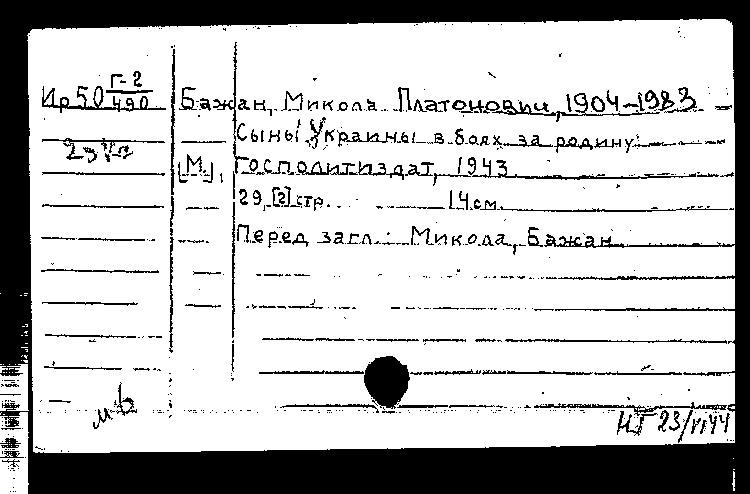 Ир 50 Г-2/490
Бажан, Микола Платонович, 1904-1983
Сыны Украины в боях за родину.
[М.], Госполитиздат, 1943
29, [2] стр. 14 см.
Перед загл.: Микола, Бажан
НТ 23/VI44